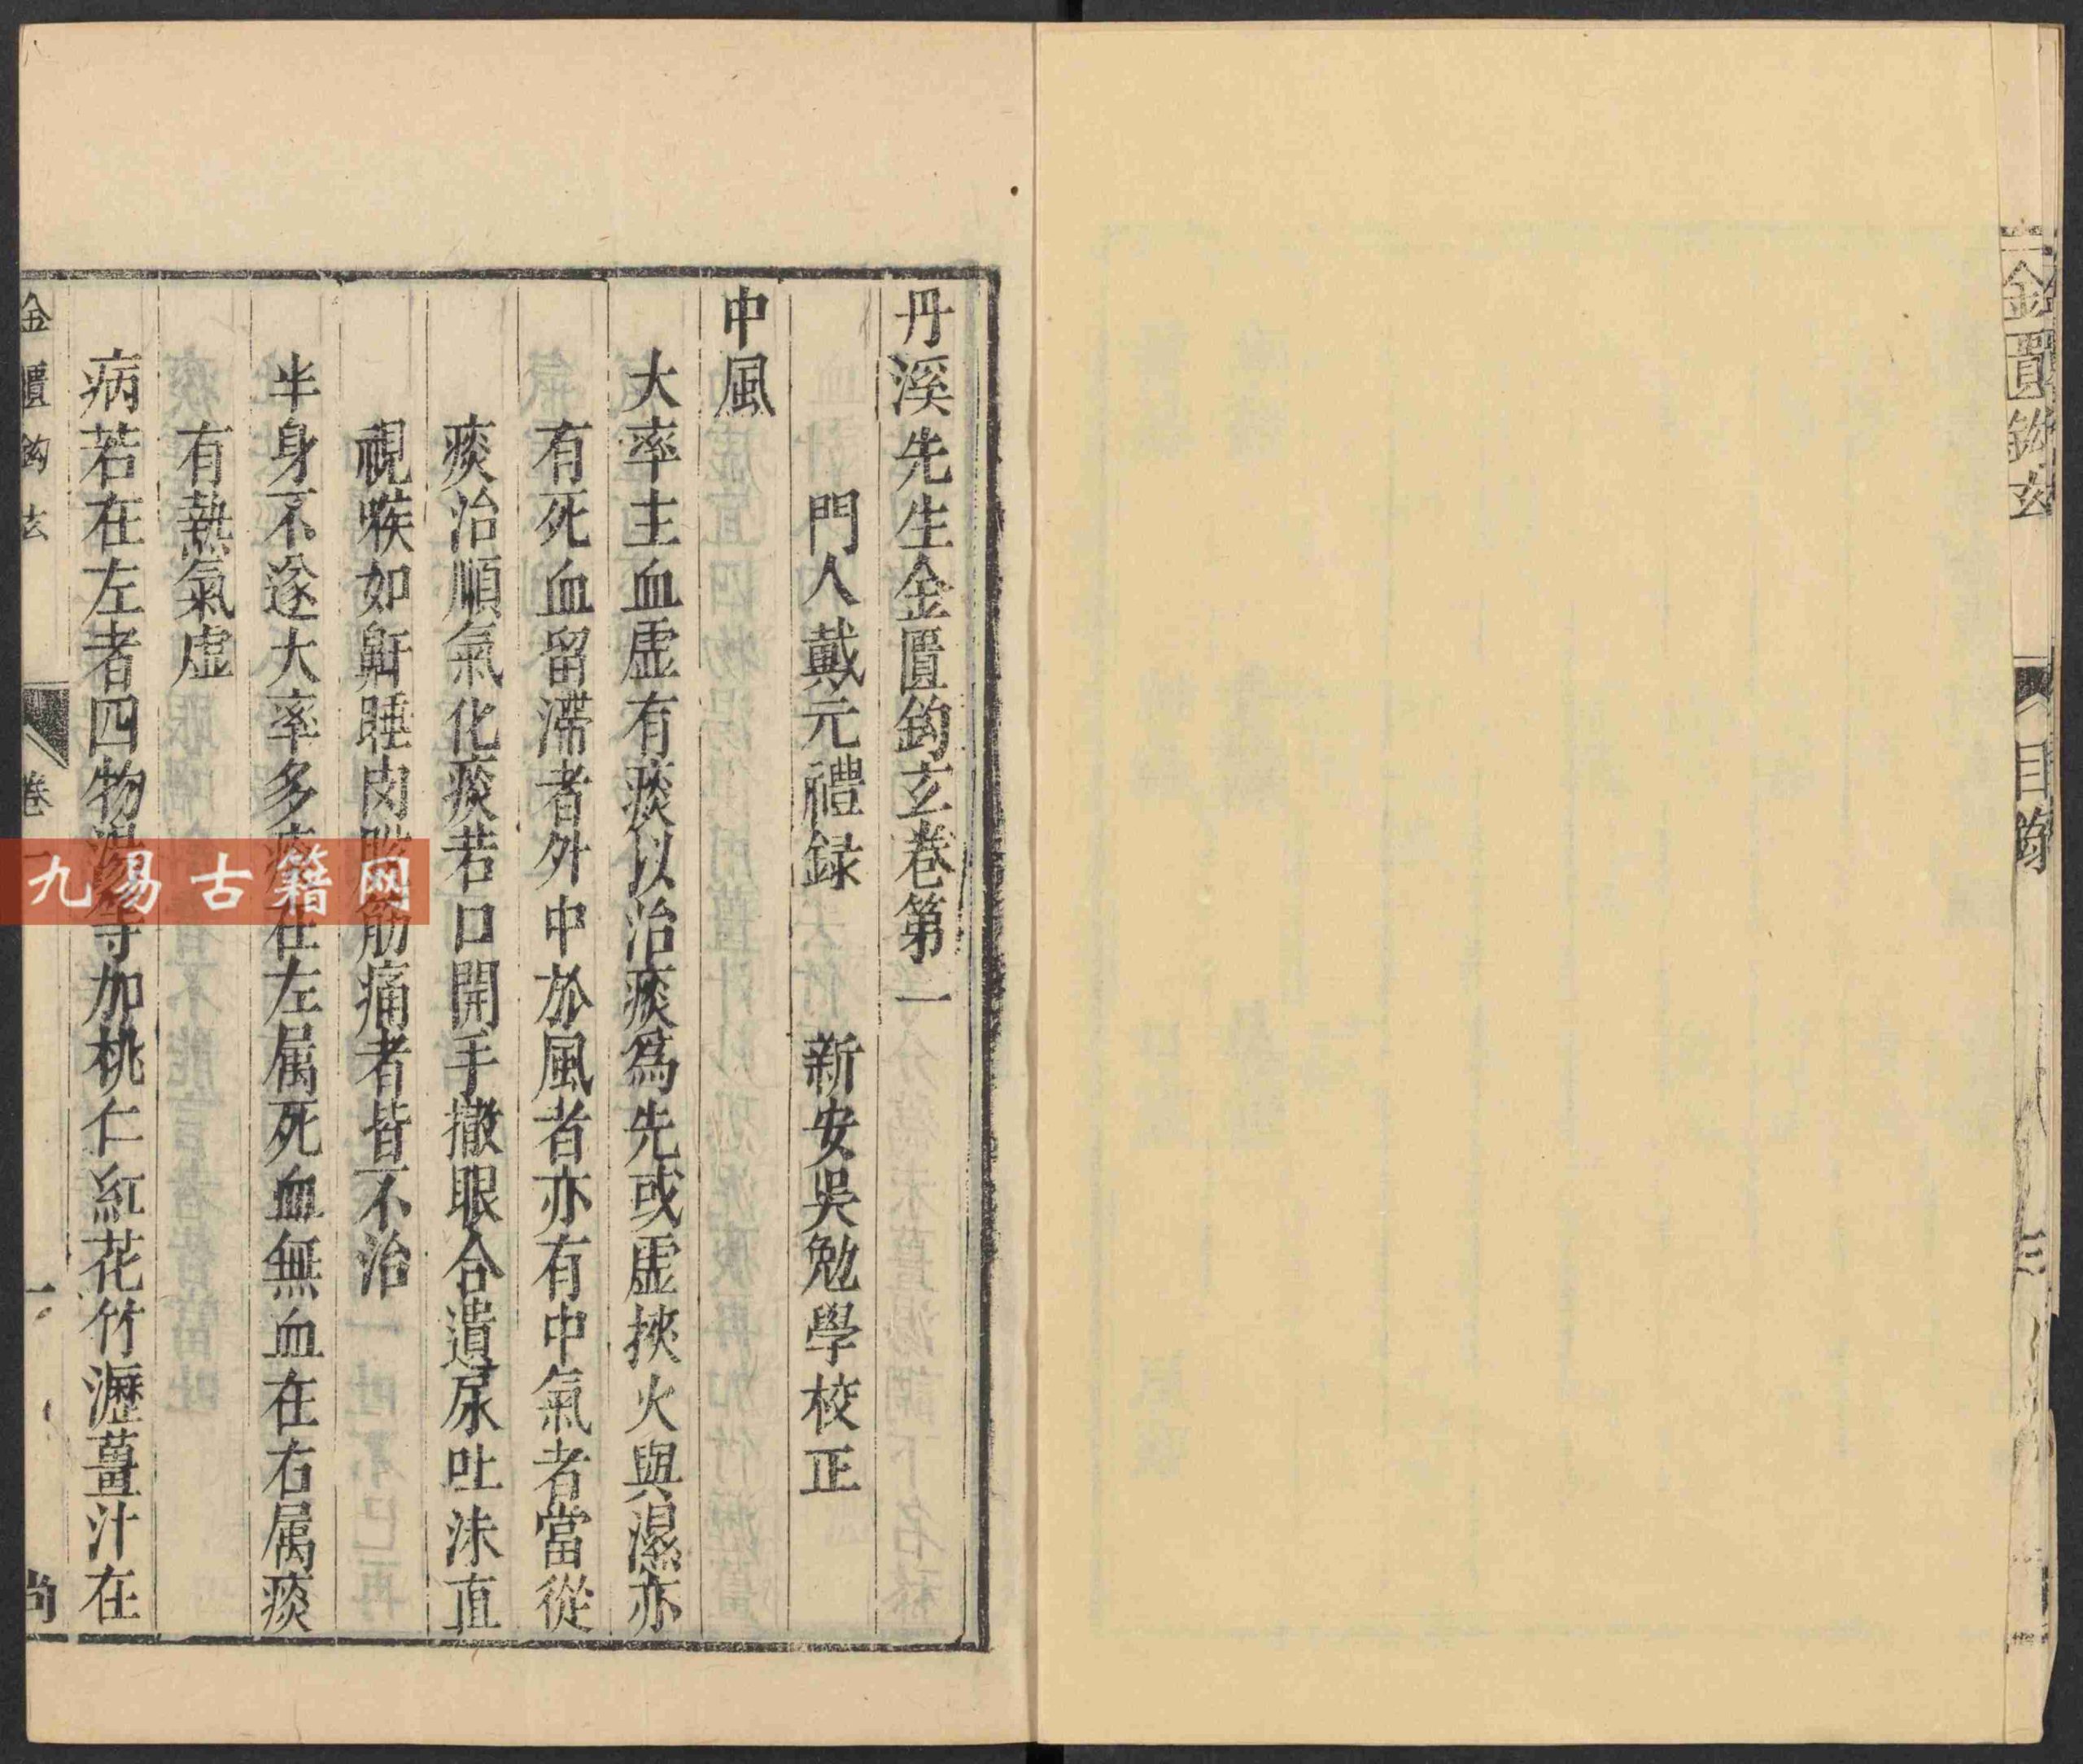 金匱鈎玄 目錄 三
丹溪先生金匱鈎玄卷第一
門人戴元禮録 新安吳勉學校正
中風
大率主血虛有痰以治痰為先或虛挾火與濕亦
有死血留滯者外中於風者亦有中氣者當從
痰治順氣化痰若口開手撒眼合遺尿吐沫直
視喉如鼾睡肉脫筋痛者皆不治
半身不遂大率多痰在左属死血無血在右属痰
有熱氣虛
病若在左者四物湯等加桃仁紅花竹瀝薑汁在
金匱鈎玄 卷一 一
九易古籍网